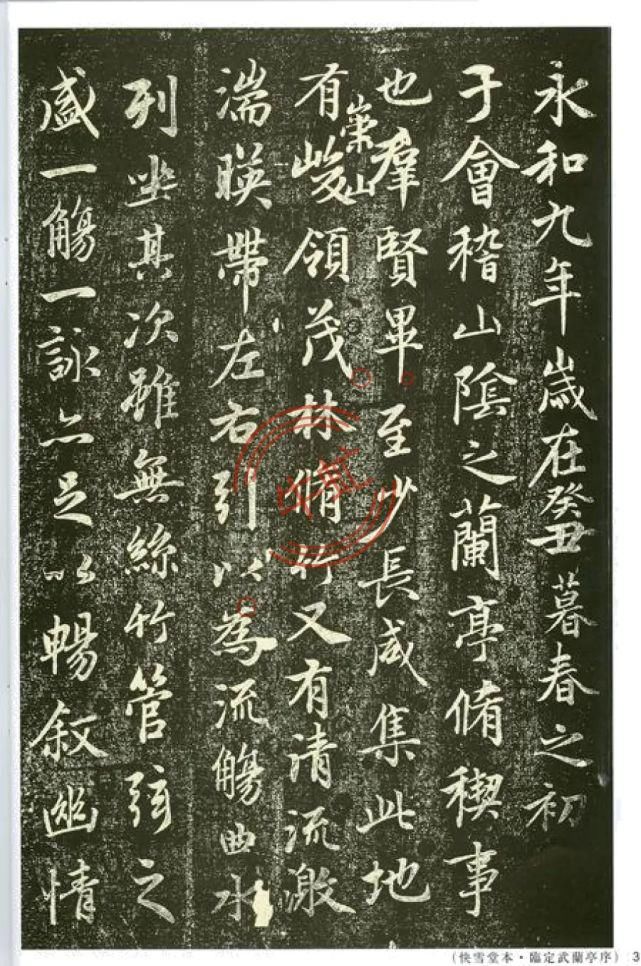 永和九年歲在癸丑暮春之初
于會稽山陰之蘭亭脩稧事
也羣賢畢至少長咸集此地
有崇山峻領茂林脩竹又有清流激
湍暎帶左右引以為流觴曲水
列坐其次雖無絲竹管弦之
盛一觴一詠亦足以暢叙幽情
(快雪堂本·臨定武蘭亭序) 3